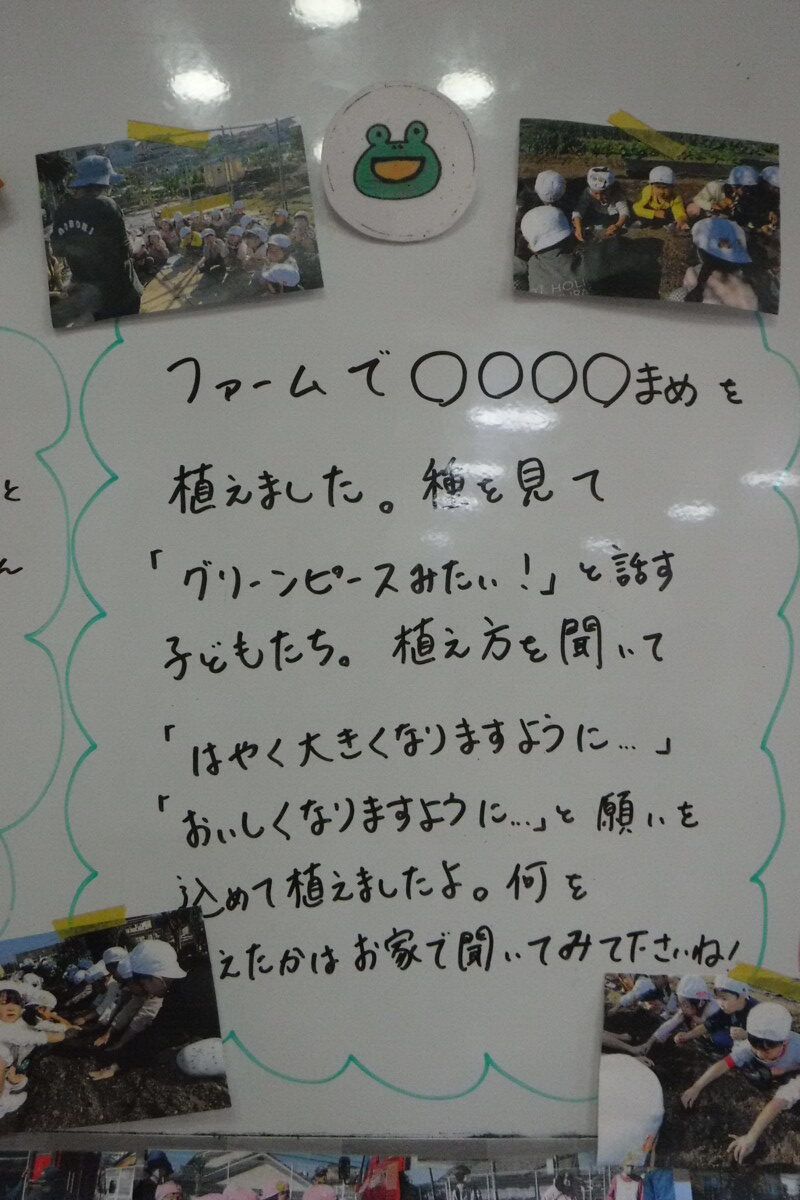 ファームで〇〇〇〇まめを
植えました。種を見て
「グリーンピースみたい！」と話す
子どもたち。植え方を聞いて
「はやく大きくなりますように…」
「おいしくなりますように…」と願いを
込めて植えましたよ。何を
えたかはお家で聞いてみてださいね！
と
ん